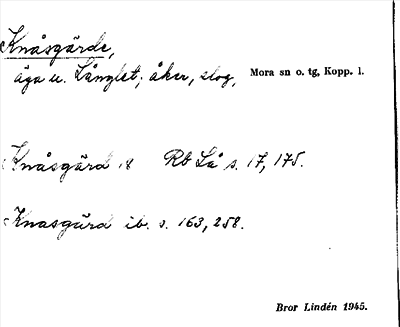 Knåsgärde,
äga u. Långlet; åker, slog, Mora sn o. tg, Kopp. l.
Knåsgärd Rb Lå s. 17, 175.
Knasgärd ib. s. 163, 258.
Bror Lindén 1945.